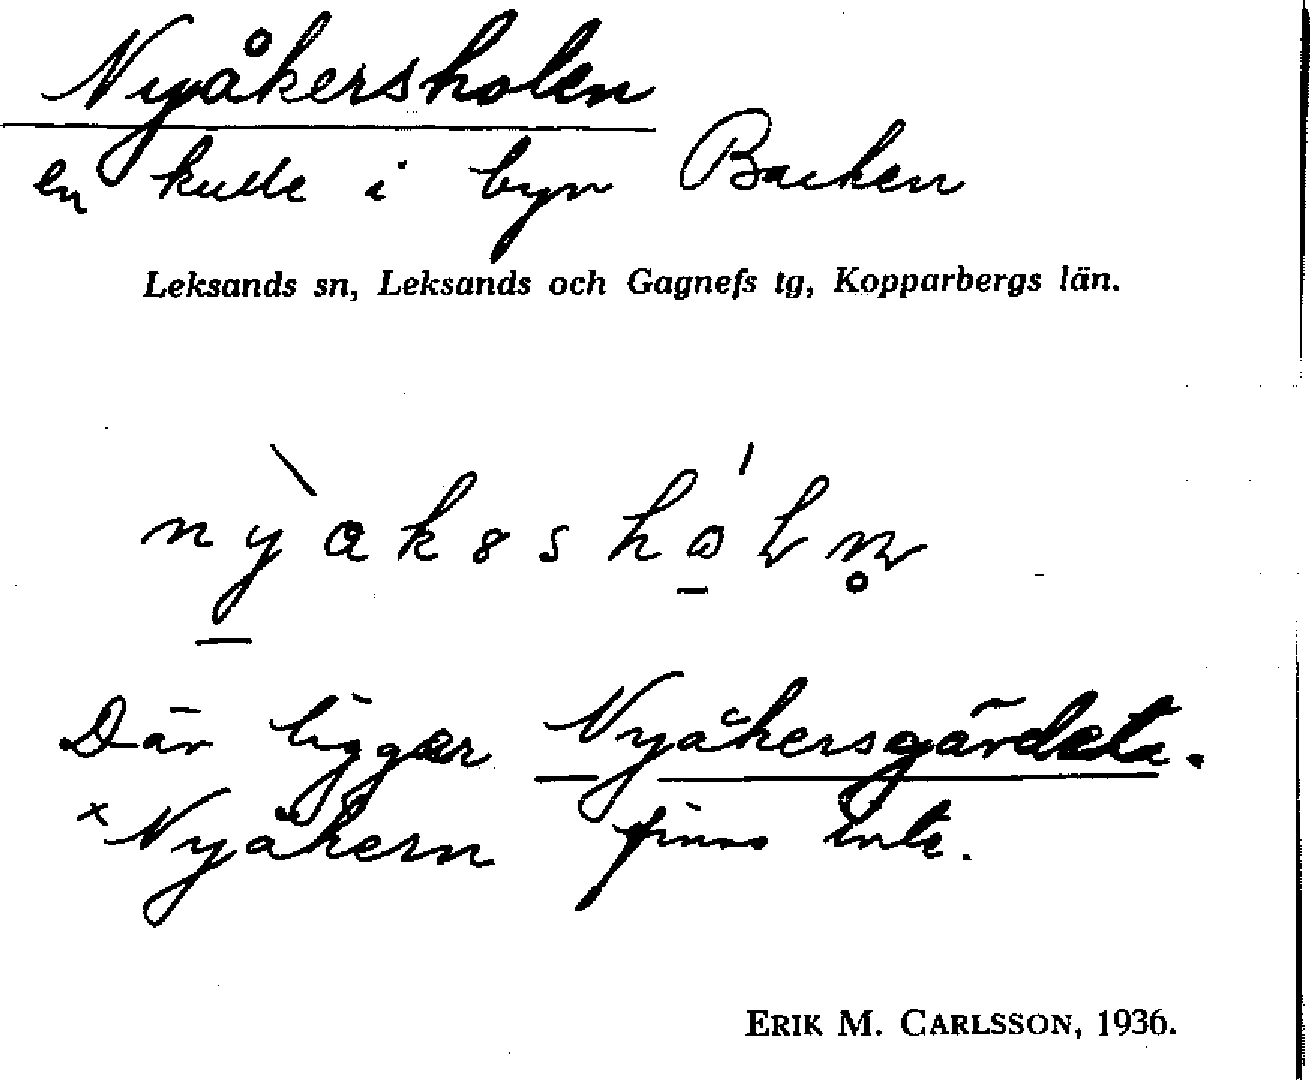 Nyåkersholen
en kulle i byn Backen
Leksands sn, Leksands och Gagnefs tg, Kopparbergs län.
Där ligger Nyåkersgärdeta.
×Nyåkern finns inte.
ERIK M. CARLSSON, 1936.